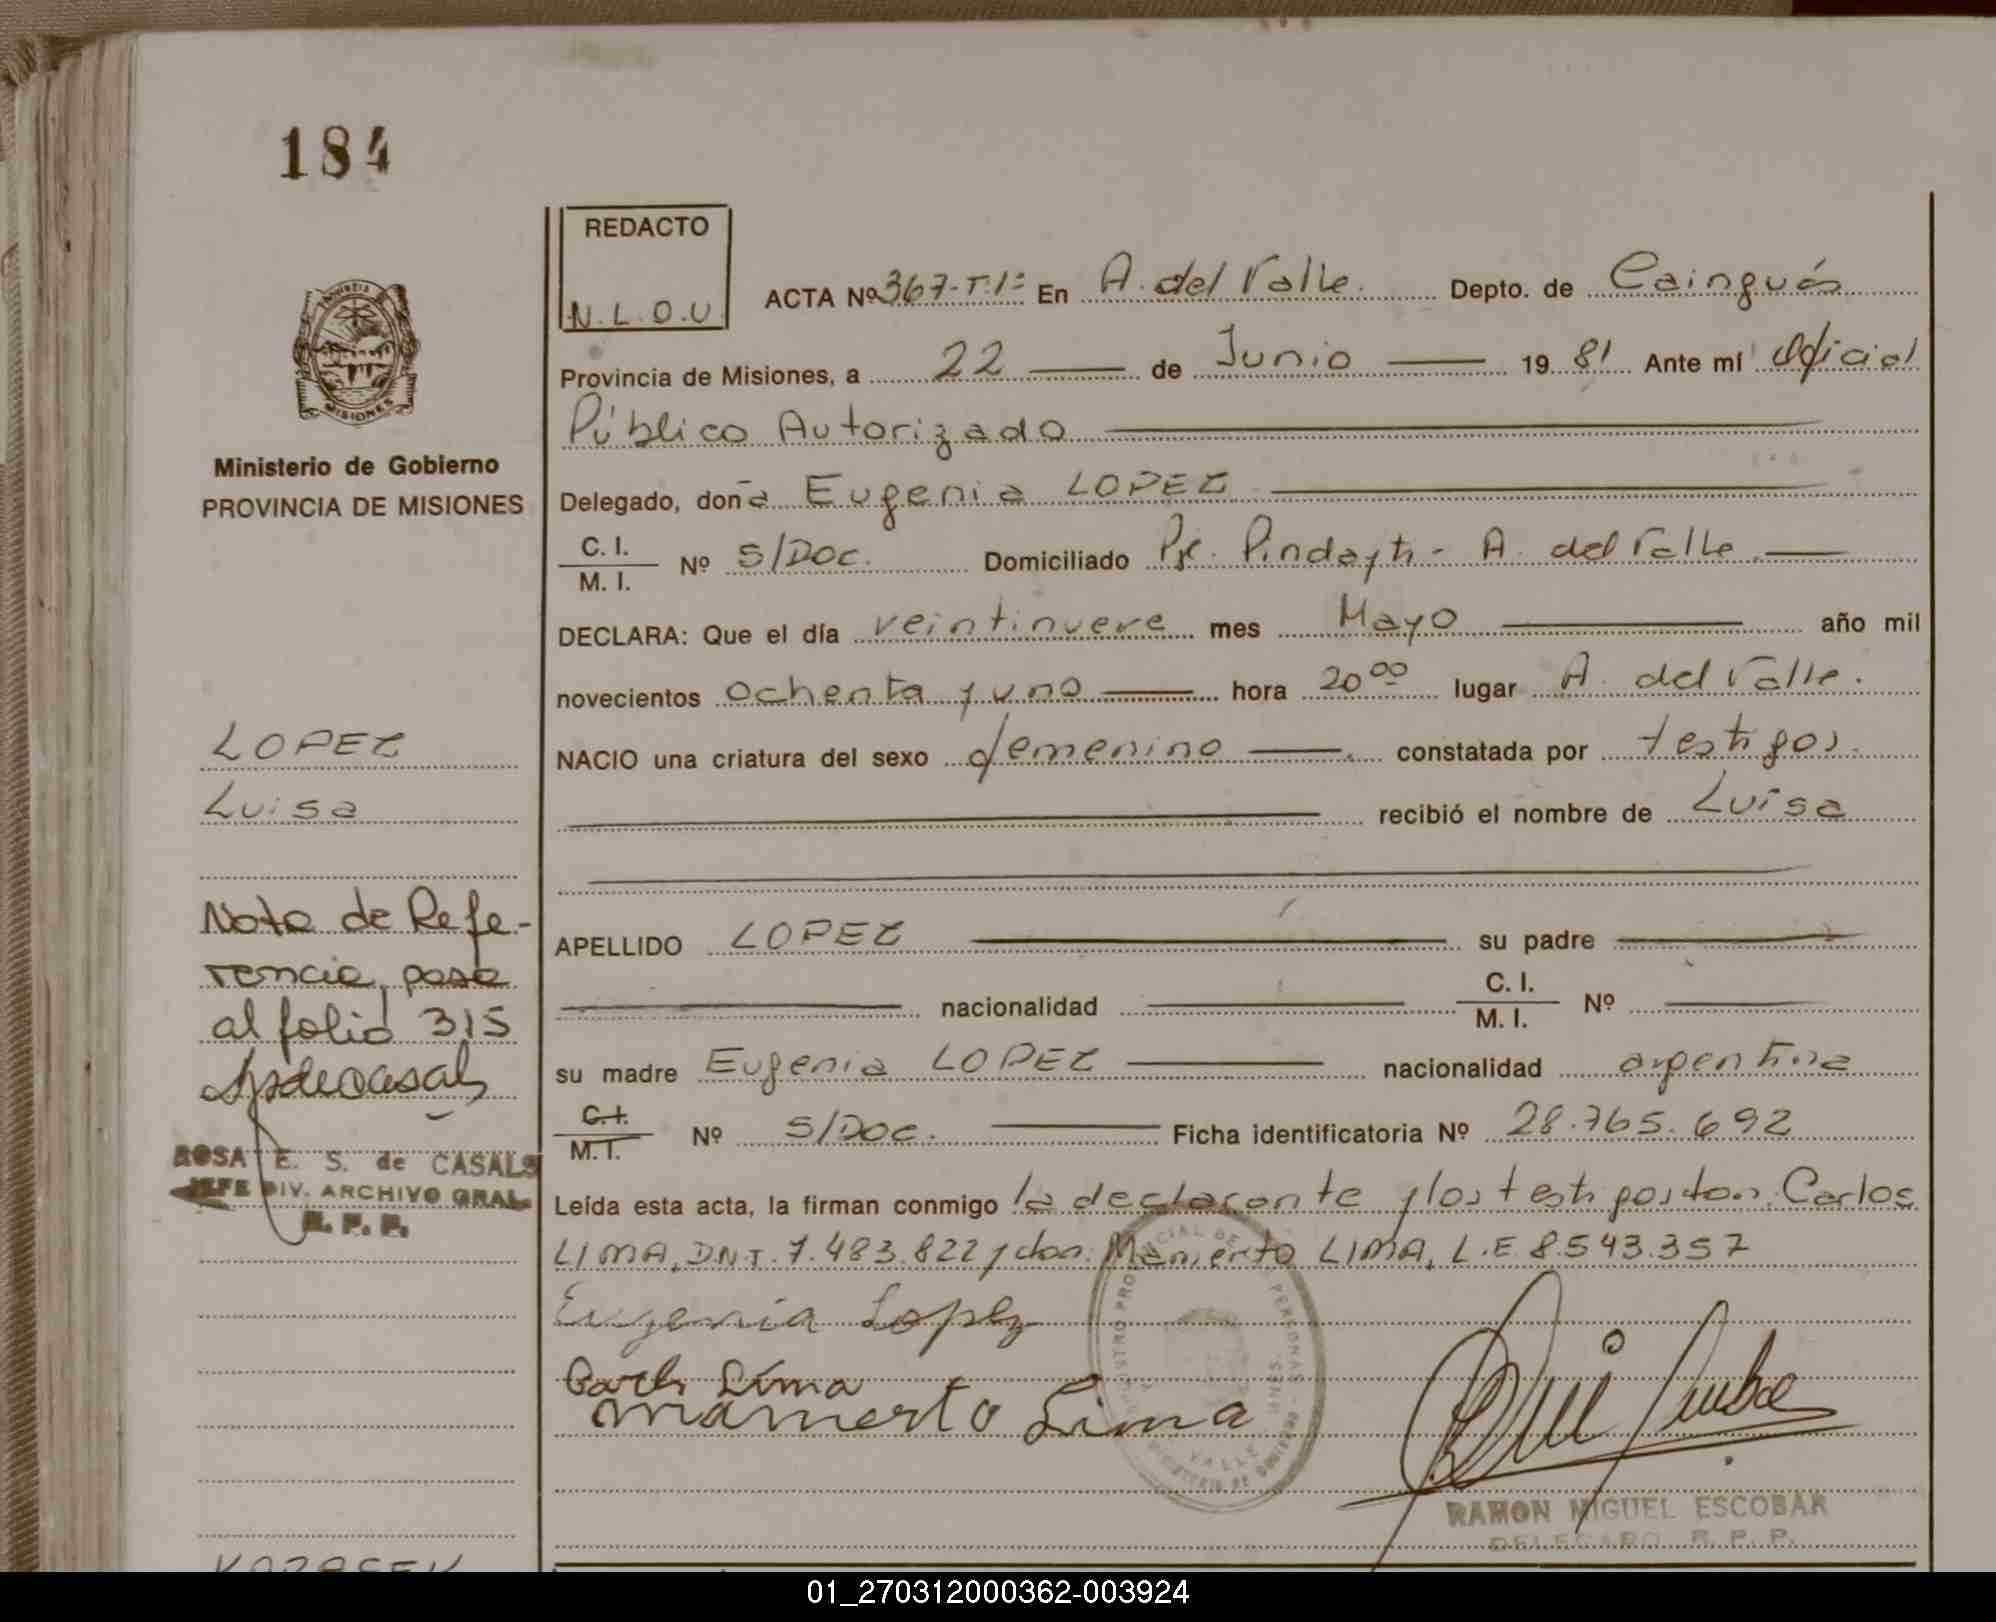 184
REDACTO
N.L.O.U.
ACTA Nº 367-T.1º En A. del Valle. Depto. de Cainguás
Provincia de Misiones, a 22 de Junio 19 81 Ante mí Oficial
Público Autorizado
Delegado, doña Eugenia LOPEZ
C. I.
M. I. Nº S/DOC. Domiciliado Pje. Pindayti - A. del Valle
DECLARA: Que el día veintinueve mes Mayo año mil
novecientos ochenta y uno hora 20 00 lugar A. del Valle.
NACIO una criatura del sexo femenino constatada por testigos.
recibió el nombre de Luisa
APELLIDO LOPEZ su padre
nacionalidad C. I.
M. I. Nº
su madre Eugenia LOPEZ nacionalidad argentina
C. I.
M. I. Nº S/DOC. Ficha identificatoria Nº 28.765.692
Leída esta acta, la firman conmigo la declarante y los testigos don: Carlos
LIMA, D.N.I. 7.483.822 y don: Mamerto LIMA, L.E 8.543.357
Eugenia Lopez
Carlos Lima
mamerto Lima
RAMON MIGUEL ESCOBAR
DELEGADO R. P. P.
MISIONES
Ministerio de Gobierno
PROVINCIA DE MISIONES
LOPEZ
Luisa
Nota de Refe-
rencia, pasa
al folio 315
ROSA E. S. de CASALS
JEFE DIV. ARCHIVO GRAL.
R. P. P.
01_270312000362-003924